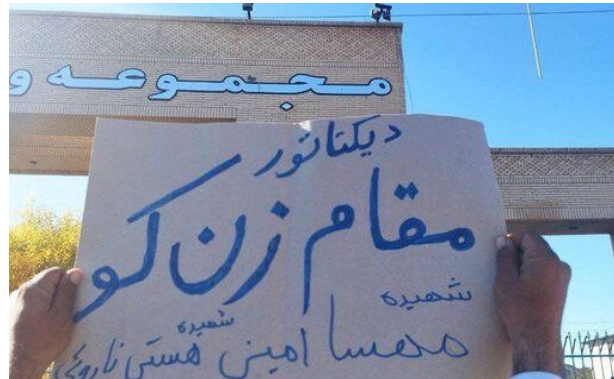 مجموعه و
دیکتاتور
مقام زن کو
شهیده
مهسا امینی شهیده هستی نارویی